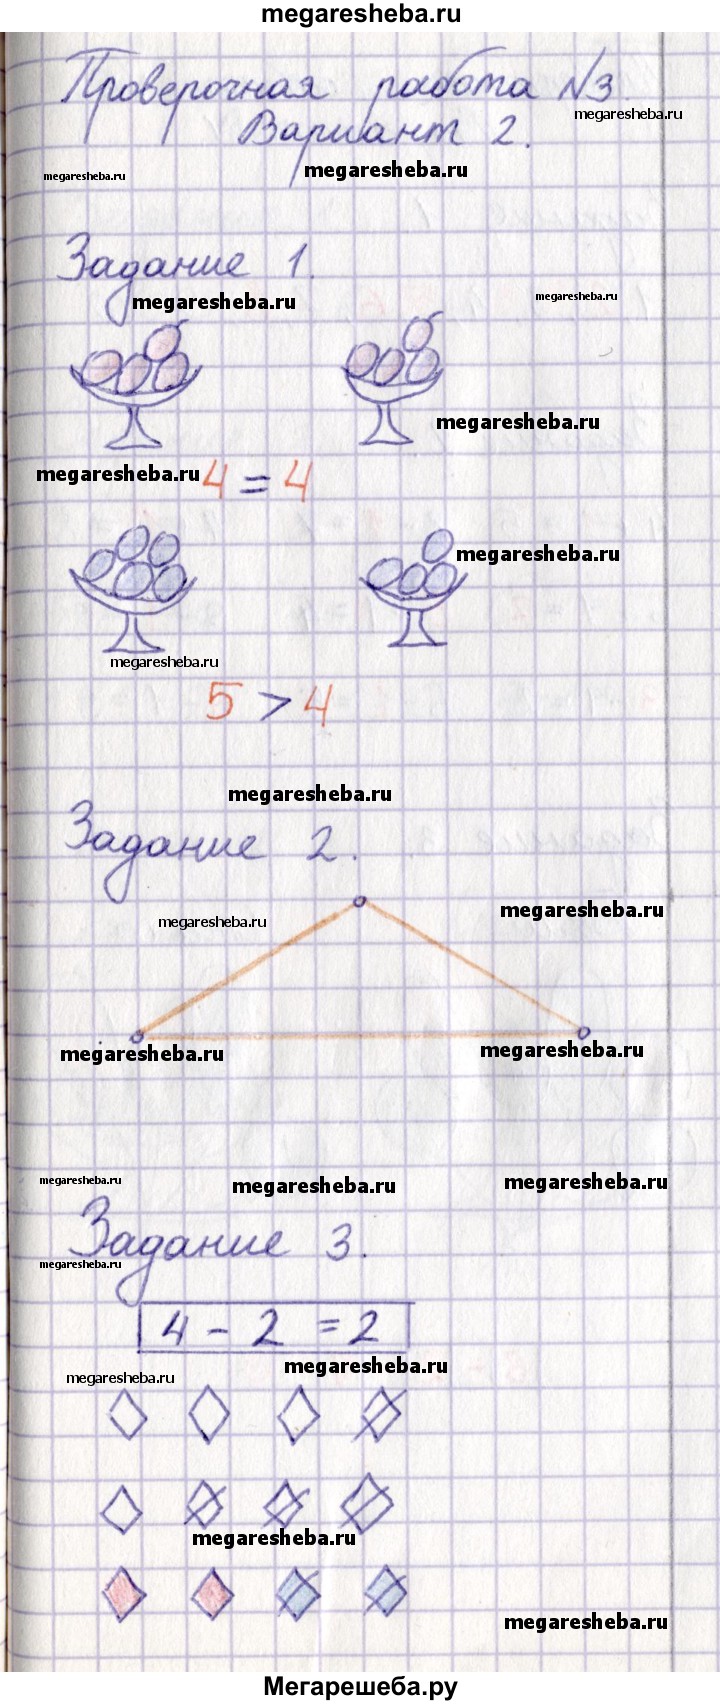 megaresheba.ru
Проверочная работа №3.
megaresheba.ru
Вариант 2.
megaresheba.ru
megaresheba.ru
Задание 1.
megaresheba.ru
megaresheba.ru
megaresheba.ru
megaresheba.ru
4 = 4
megaresheba.ru
megaresheba.ru
5 > 4
megaresheba.ru
Задание 2.
megaresheba.ru
megaresheba.ru
megaresheba.ru
megaresheba.ru
megaresheba.ru
megaresheba.ru
megaresheba.ru
Задание 3.
megaresheba.ru
4 - 2 = 2
megaresheba.ru
megaresheba.ru
megaresheba.ru
megaresheba.ru
Мегарешеба.ру